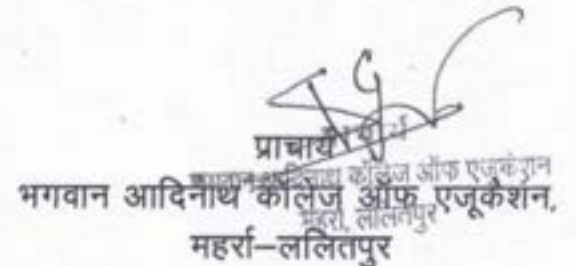 प्राचार्य
भगवान आदिनाथ कॉलेज ऑफ एजूकेशन
महर्रा, ललितपुर
भगवान आदिनाथ कॉलेज ऑफ एजूकेशन,
महर्रा–ललितपुर